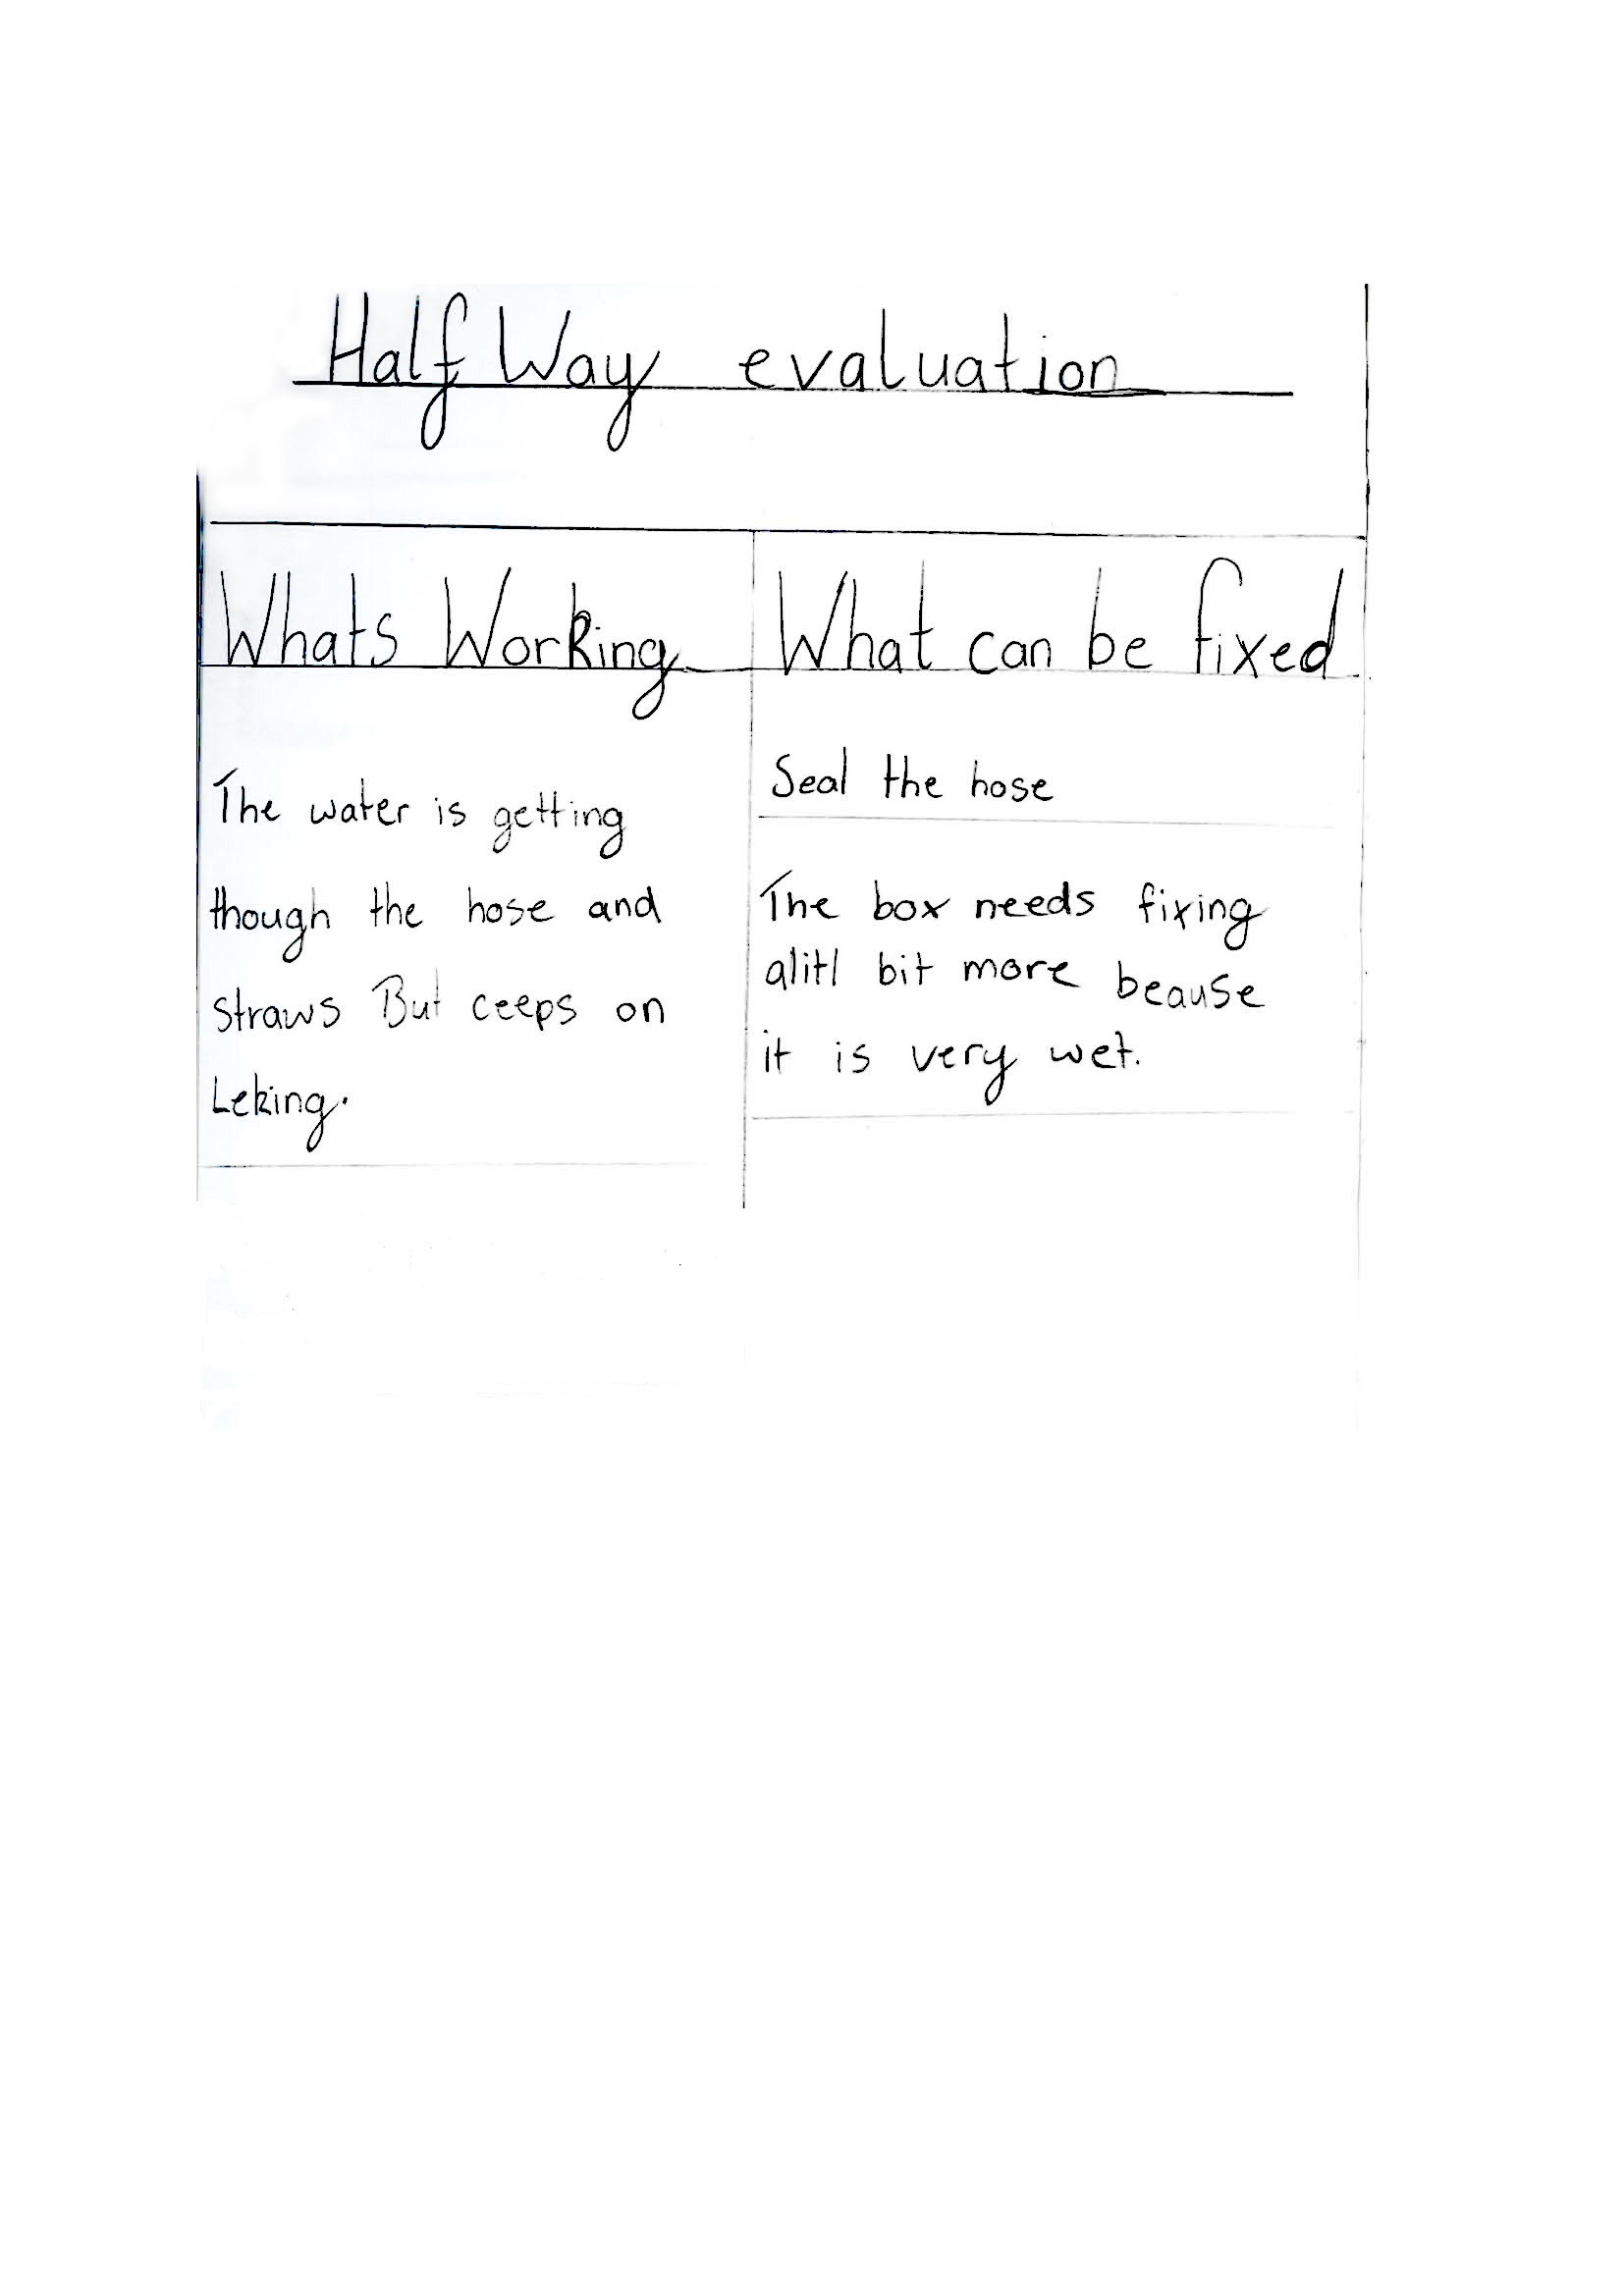 Half Way evaluation
Whats Working
The water is getting
though the hose and
straws But ceeps on
Leking.
What can be fixed
Seal the hose
The box needs fixing
alitl bit more beause
it is very wet.